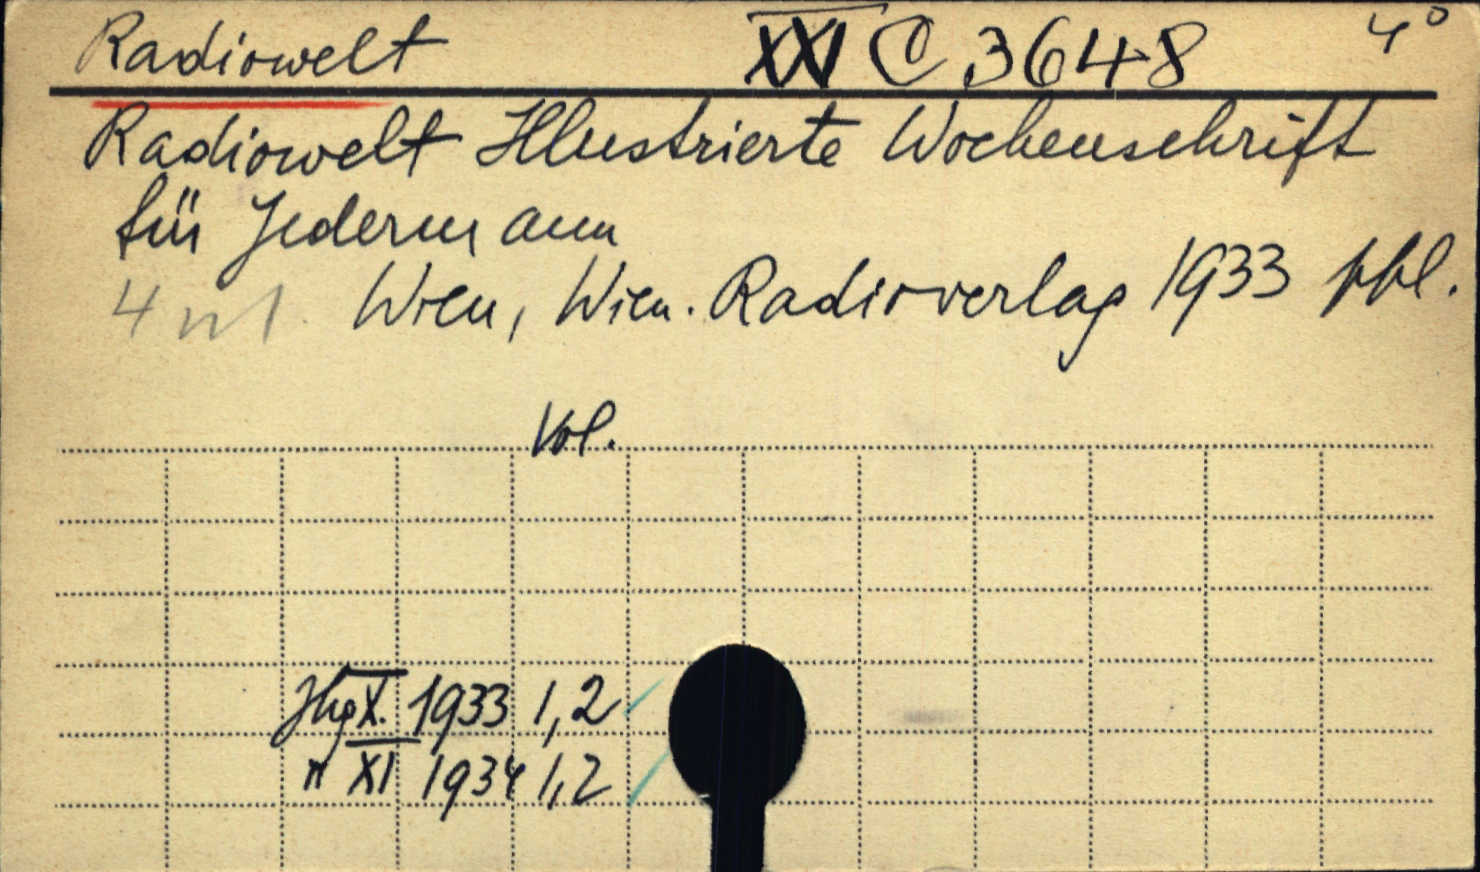 Radiowelt XXI C 3648 4°
Radiowelt Illustrierte Wochenschrift
für Jedermann
Wien, Wien. Radioverlag 1933
Vol.
Jhg X. 1933 1,2
" XI 1934 1,2